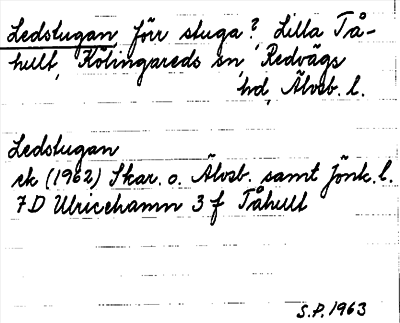 Ledstugan förr stuga?, Lilla Tå-
hult, Kölingareds sn, Redvägs
hd, Älvsb. l.
Ledstugan
ek (1962) Skar. o. Älvsb. samt Jönk. l.
7D Ulricehamn 3 f Tåhult
S.P. 1963